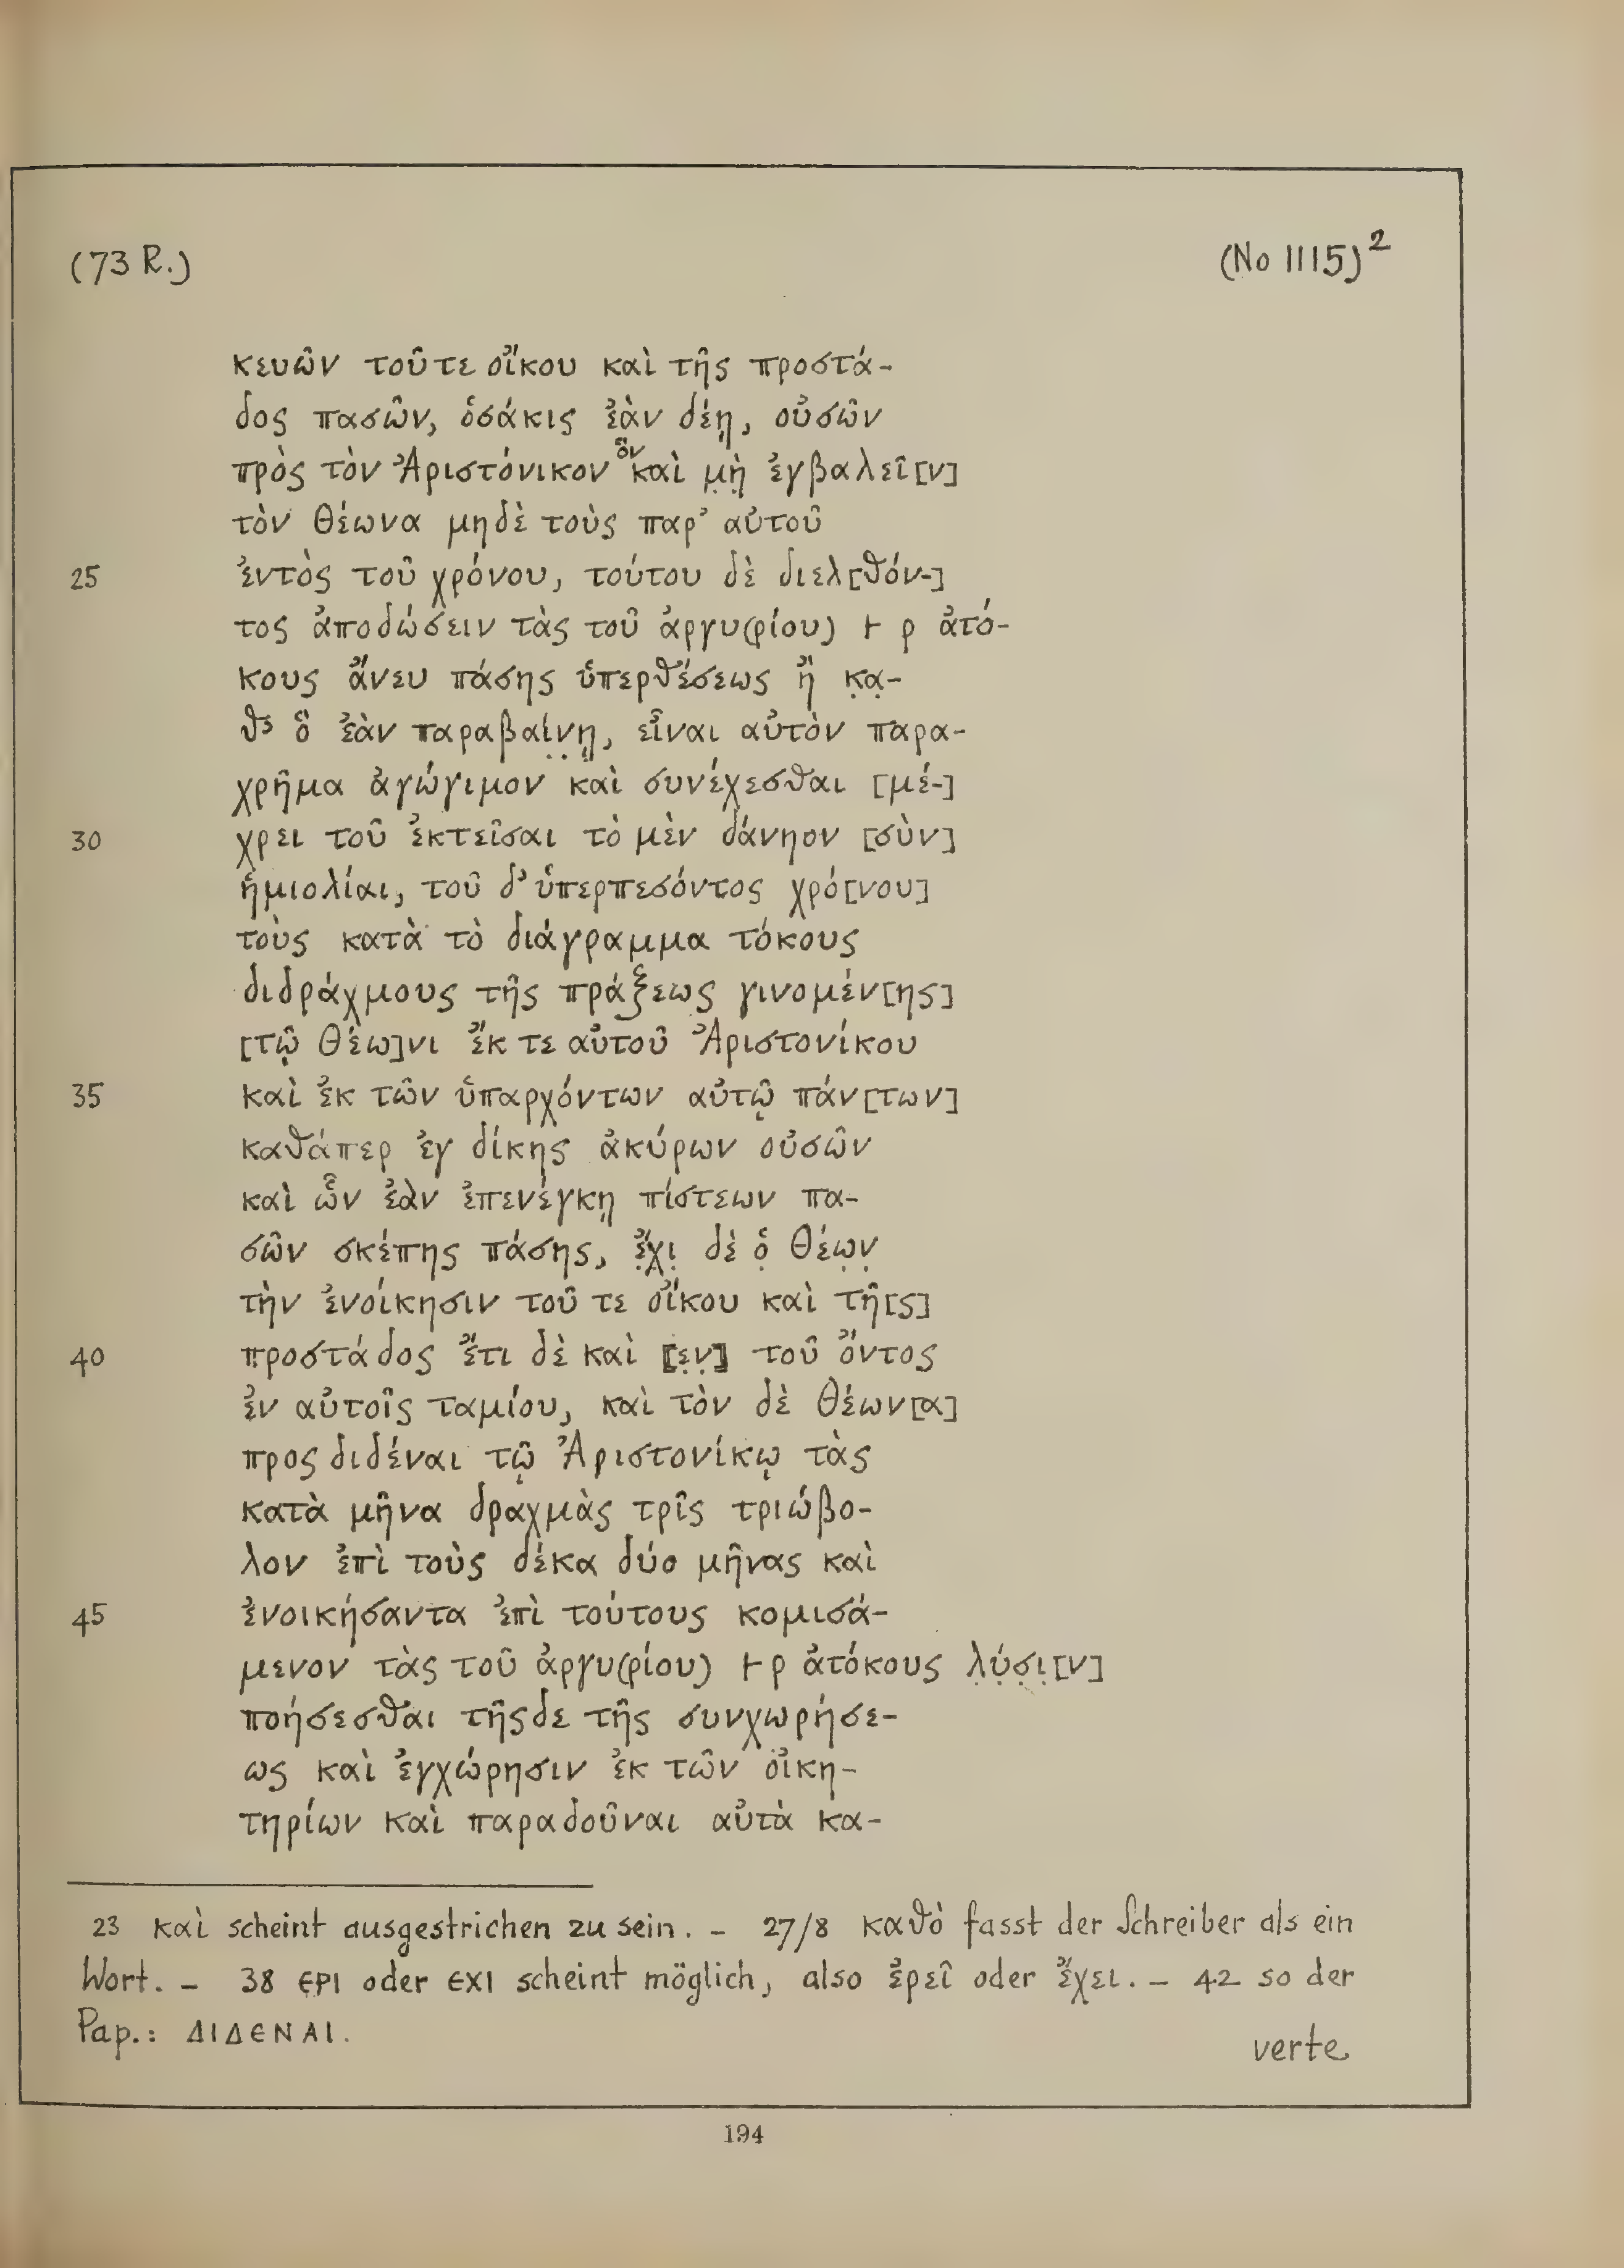 (73 R.)
(No 1115)²
κευῶν τοῦτε οἴκου καὶ τῆς προστά-
δος πασῶν, ὁσάκις ἐὰν δέῃ, οὐσῶν
πρὸς τὸν Ἀριστόνικον ὃν καὶ μ̣ὴ̣ ἐγβαλεῖ[ν]
τὸν Θέωνα μηδὲ τοὺς παρ’ αὐτοῦ
25 ἐντὸς τοῦ χρόνου, τούτου δὲ διελ[θόν-]
τος ἀποδώσειν τὰς τοῦ ἀργυ(ρίου) 𐅂 ρ ἀτό-
κους ἄνευ πάσης ὑπερθέσεως ἢ κ̣α̣-
θ’ ὃ ἐὰν παραβαί̣ν̣ῃ̣, εἶναι αὐτὸν παρα-
χρῆμα ἀγώγιμον καὶ συνέχεσθαι [μέ-]
30 χρει τοῦ ἐκτεῖσαι τὸ μὲν δάνηον [σὺν]
ἡμιολίαι, τοῦ δ’ ὑπερπεσόντος χρό[νου]
τοὺς κατὰ τὸ διάγραμμα τόκους
διδράχμους τῆς πράξεως γινομέν[ης]
[τῷ Θέω]νι ἔκ τε αὐτοῦ Ἀριστονίκου
35 καὶ ἐκ τῶν ὑπαρχόντων αὐτῷ πάν[των]
καθάπερ ἐγ δίκης ἀκύρων οὐσῶν
καὶ ὧν ἐὰν ἐπενέγκῃ πίστεων πα-
σῶν σκέπης πάσης, ἔ̣χ̣ι̣ δὲ ὁ̣ Θέω̣ν̣
τὴν ἐνοίκησιν τοῦ τε οἴκου καὶ τῆ[ς]
40 προστάδος ἔτι δὲ καὶ ⟦ε̣ν̣⟧ τοῦ ὄντος
ἐν αὐτοῖς ταμίου, καὶ τὸν δὲ Θέων[α]
προςδιδέναι τῷ Ἀριστονίκῳ τὰς
κατὰ μῆνα δραχμὰς τρῖς τριώβο-
λον ἐπὶ τοὺς δέκα δύο μῆνας καὶ
45 ἐνοικήσαντα ἐπὶ τούτους κομισά-
μενον τὰς τοῦ ἀργυ(ρίου) 𐅂 ρ ἀτόκους λ̣ύ̣σ̣ι̣[ν]
ποήσεσθαι τῆςδε τῆς συνχωρήσε-
ως καὶ ἐγχώρησιν ἐκ τῶν οἰκη-
τηρίων καὶ παραδοῦναι αὐτὰ κα-
23 καὶ scheint ausgestrichen zu sein. – 27/8 καθὸ fasst der Schreiber als ein
Wort. – 38 ϵΡΙ oder ϵΧΙ scheint möglich, also ἐρεῖ oder ἔχει. – 42 so der
Pap.: ΔΙΔϵΝΑΙ.
verte
194